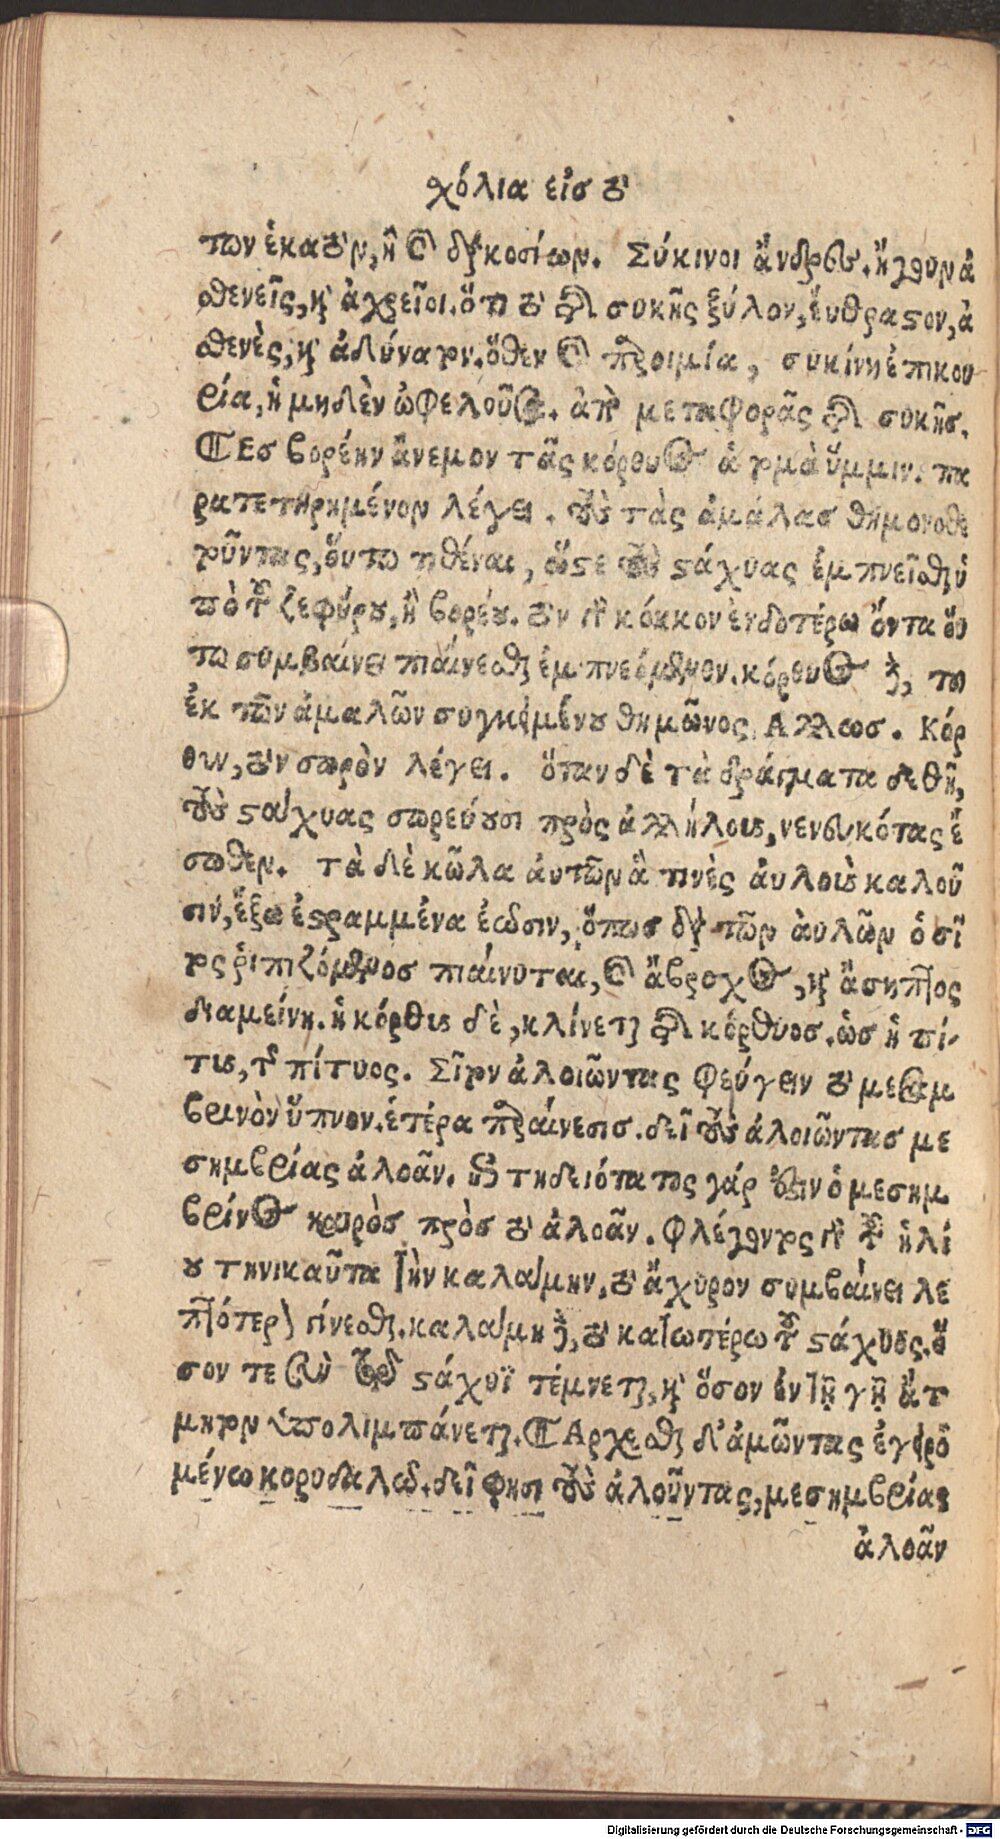 χόλια εἰσ τὸ
πων ἑκατὸν, ἢ καὶ διακοσίων. Σύκινοι ἄνδρες. ἤγουν ἀ
σθενεῖς, καὶ ἀχρεῖοι. ὅτι τὸ τῆς συκῆς ξύλον, ἔυθραστον, ἀ
σθενὲς, καὶ ἀδύνατον. ὅθεν καὶ παροιμία, συκίνη ἐπικου
ρία, ἡ μηδὲν ὠφελοῦσα. ἀπὸ μεταφορᾶς τῆς συκῆσ.
Εσ βορέην ἄνεμον τᾶς κόρθυος ἁ τομὰ ὔμμιν. πα
ρατετηρημένον λέγει. τοὺς τὰς ἀμάλασ θημονοθε
τοῦντας, ὅυτω τιθέναι, ὥστε τοὺς στάχυας ἐμπνεῖσθαι ὑ
πὸ τοῦ ζεφύρου, ἢ βορέου. τὸν γὰρ κόκκον ἐνδοτέρω ὄντα ὅυ
τω συμβαίνει πιαίνεσθαι ἐμπνεόμενον. κόρθυος δὲ, του
ἐκ τῶν ἀμαλῶν συγκειμένου θημῶνος. Αλλωσ. Κόρ
θυν, τὸν σωρὸν λέγει. ὅταν δὲ τὰ δράγματα τεθῆ,
τοὺς στάχυας σωρεύουσι πρὸς ἀλλήλους, νενευκότας ἔ
σωθεν. τὰ δὲ κῶλα ἀυτῶν ἅ τινὲς ἀυλοὺς καλοῦ
σιν, ἔξω ἐστραμμένα ἐῶσιν, ὅπωσ διὰ τῶν ἀυλῶν ὁ σῖ
τος ῥιπιζόμενοσ πιαίνηται, καὶ ἄβροχος, καὶ ἄσηπτος
διαμείνη. ἡ κόρθυς δὲ, κλίνεται τῆς κόρθυοσ. ὡσ ἡ πί-
τυς, τῆς πίτυος. Σῖτον ἀλοιῶντας φεύγειν τὸ μεσαμ
βρινὸν ὕπνον. ἑτέρα παραίνεσισ. δεῖ τοὺς ἀλοιῶντασ με
σημβρίας ἀλοᾶν. ἐπιτηδειότατος γάρ ἐστιν ὁ μεσημ
βρίνος καιρὸσ πρὸσ τὸ ἀλοᾶν. Φλέγοντος γὰρ τοῦ ἡλί
ου τηνικαῦτα τὴν καλάμην, τὸ ἄχυρον συμβαίνει λε
πτότερον γίνεσθαι. καλάμη δὲ, τὸ κατωτέρω τοῦ στάχυος. ὅ
σον τε σὺν τῷ στάχυϊ τέμνεται, καὶ ὅσον ἐν τῇ γῇ ἄτ
μητον ὑπολιμπάνεται. Αρχεσθαι δ' ἀμῶντας ἐγειρο
μένω κορυδαλῶ. δεῖ φησι τοὺς ἀλοῦντας, μεσημβρίας
ἀλοᾶν
Digitalisierung gefördert durch die Deutsche Forschungsgemeinschaft - DFG